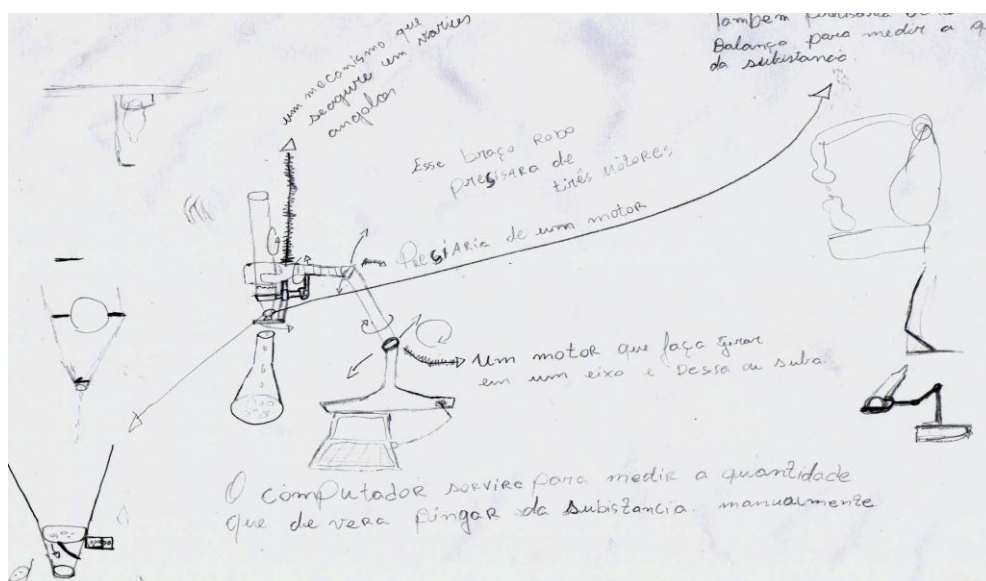 um mecanismo que
seagure um varies
angolos
Tambem precisaria de
Balança para medir a q
da subistancia.
Esse braço Robo
preçisara de
tirês motores
Preçiaria de um motor
um motor que faça gerar
em um eixo e Dessa ou suba
O computador servire para medir a quantidade
que de vera pingar da subistancia. manualmente